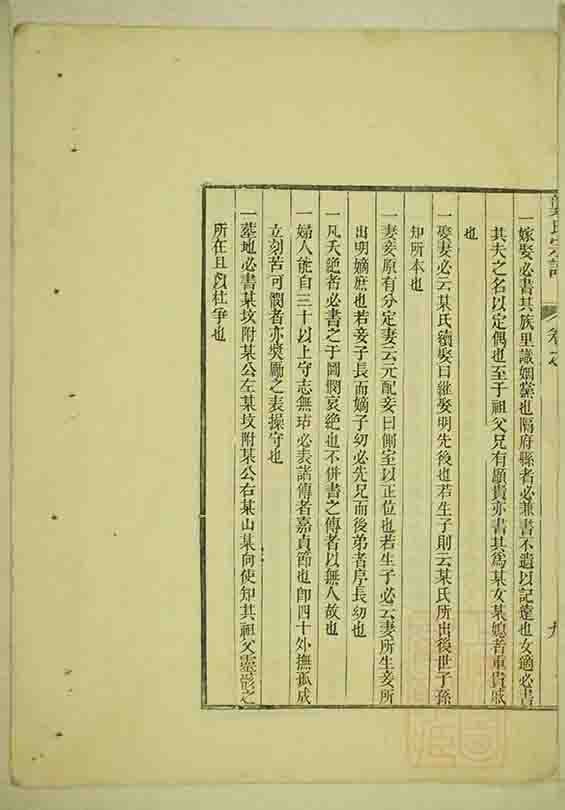 氏宗譜
卷之
九
一嫁娶必書其族里識姻黨也隔府縣者必兼書不遺以記遠也女適必書
其夫之名以定偶也至于祖父兄有顯貴亦書其爲某女某媳者重貴戚
也
一娶妻必云某氏續娶曰繼娶明先後也若生子則云某氏所出後世子孫
知所本也
一妻妾原有分定妻云元配妾曰側室以正位也若生子必云妻所生妾所
出明嫡庶也若妾子長而嫡子幼必先兄而後弟者序長幼也
一凡夭絶者必書之于圖憫哀絶也不併書之傳者以無人故也
一婦人能自三十以上守志無玷必表諸傳者嘉貞節也卽四十外撫孤成
立刻苦可憫者亦奬勵之表操守也
一塟地必書某坟附某公左某坟附某公右某山某向使知其祖父靈影之
所在且以杜爭也